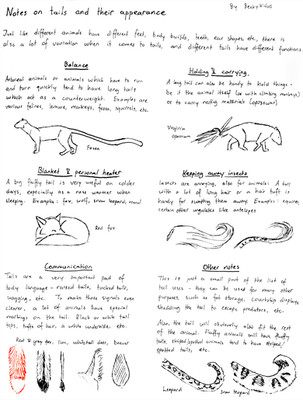 Notes on tails and their appearance
By Becky
Just like different animals have different feet, body builds, teeth, ear shapes etc, there is
also a lot of variation when it comes to tails, and different tails have different functions
Balance
Arboreal animals or animals which have to run
and turn quickly tend to have long tails
which act as a counterweight. Examples are
various felines, lemurs, monkeys, fossa, squirrels, etc.
Fossa
Blanket & personal heater
A big fluffy tail is very useful on colder
days, especially as a nose warmer when
sleeping. Examples: fox, wolf, snow leopard
Red fox
Communication
Tails are a very important part of
body language - raised tails, tucked tails,
wagging, etc. To make these signals even
clearer, a lot of animals have special
markings on the tail. Black or white tail
tips, tufts of hair, a white underside, etc.
Red & grey fox, lion, whitetail deer,
Holding & carrying
A big tail can also be handy to hold things -
be it the animal itself (as with climbing monkeys)
or to carry nesting materials (opossum).
Virginia
opossum
Keeping away insects
Insects are annoying, also for animals: A tail
with a lot of long hair or a hair tuft is
handy for swatting them away. Examples: horse,
certain other ungulates like antelopes
Other notes
This is just a small part of the list of
tail uses - they can be used for many other
purposes such as fat storage, courtship displays
shedding the tail to escape predators, etc.
Also, the tail will obviously also fit the rest
of the animal. Fluffy animals will have fluffy
tails, striped/spotted animals tend to have striped/
spotted tails, etc.
Leopard
Snow leopard